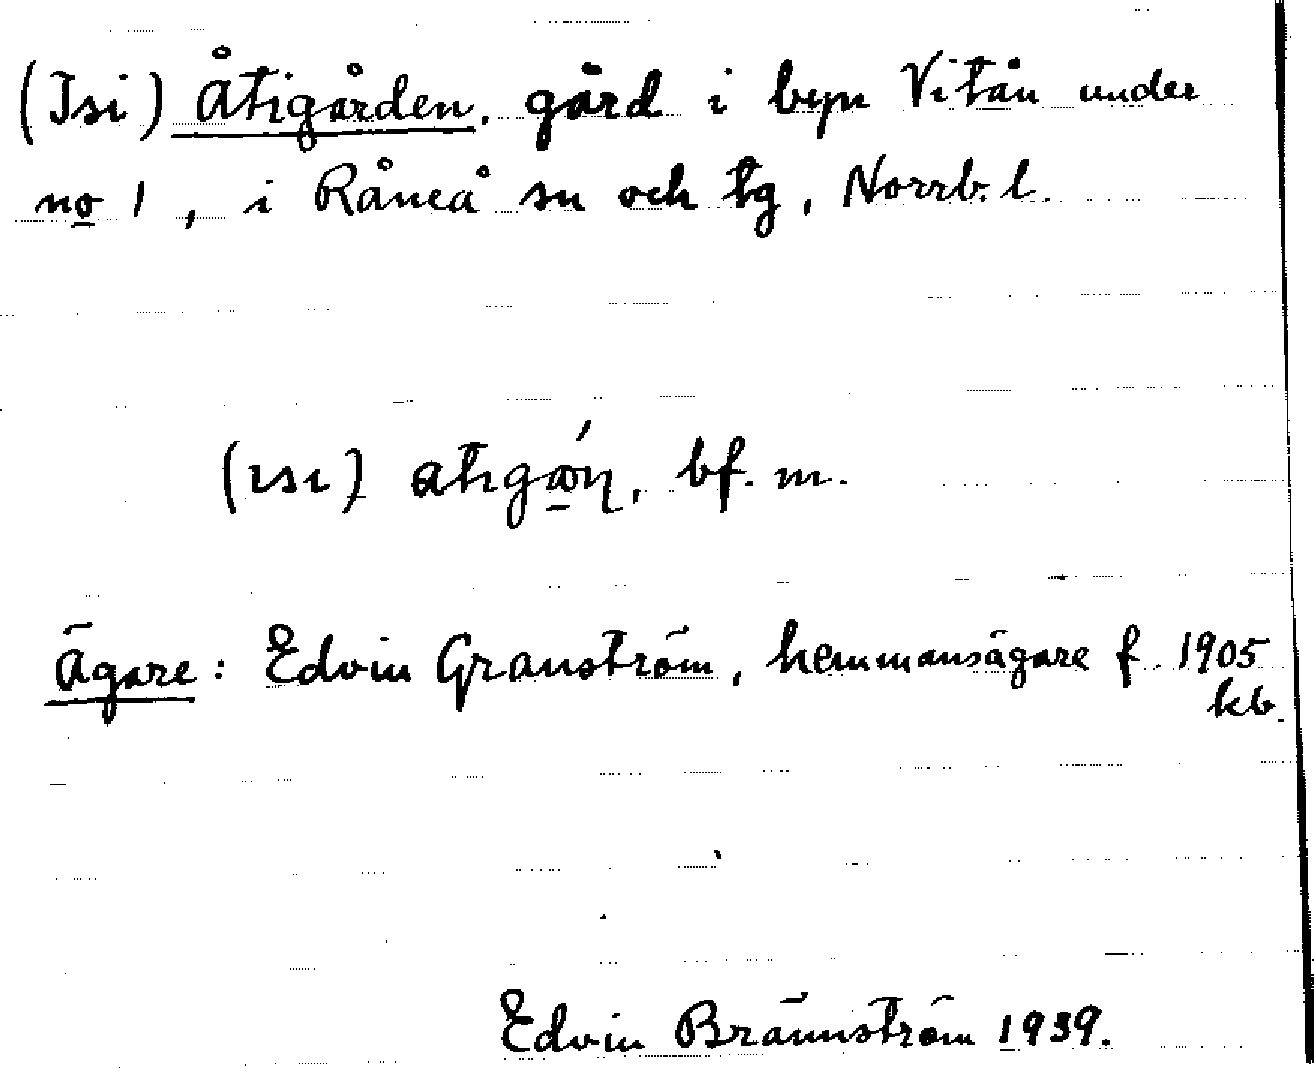 (Isi) Åtigården, gård i byn Vitån under
no 1, i Råneå sn och tg, Norrb. l.
(ısı) atıgɷ́n̥, bf. m.
Ägare: Edvin Granström, hemmansägare f. 1905
kb.
Edvin Brännström 1939.